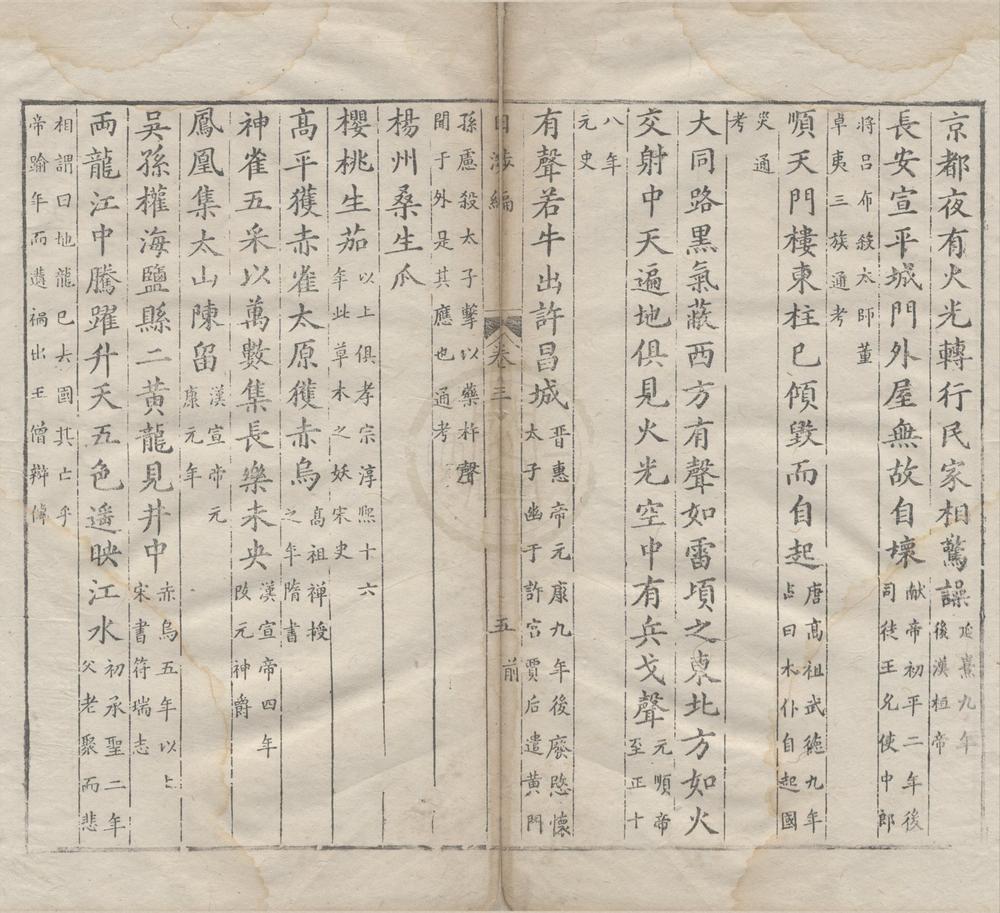 京都夜有火光轉行民家相驚譟後漢桓帝延熹九年
長安宣平城門外屋無故自壞献帝初平二年後司徒王允使中郎
將呂布殺太師董卓夷三族通考
順天門樓東柱已傾毀而自起唐髙祖武德九年占曰木仆自起國
災通考
大同路黒氣蔽西方有聲如雷頃之東北方如火
交射中天遍地俱見火光空中有兵戈聲元順帝至正十
八年元史
有聲若牛出許昌城晋惠帝元康九年後廢愍懷太子幽于許宫賈后遣黄門
日涉編 卷三 五 前
孫慮殺太子擊以藥杵聲聞于外是其應也通考
楊州桑生瓜
櫻桃生茄以上俱孝宗淳熙十六年此草木之妖宋史
髙平獲赤雀太原獲赤烏髙祖禅授之年隋書
神雀五采以萬數集長樂未央漢宣帝四年改元神爵
鳳凰集太山陳留漢宣帝元康元年
吳孫權海鹽縣二黄龍見井中赤烏五年以上宋書符瑞志
両龍江中騰躍升天五色遥映江水初承聖二年父老聚而悲
相謂曰地龍已去國其亡乎帝踰年而遘禍出王僧辯傳